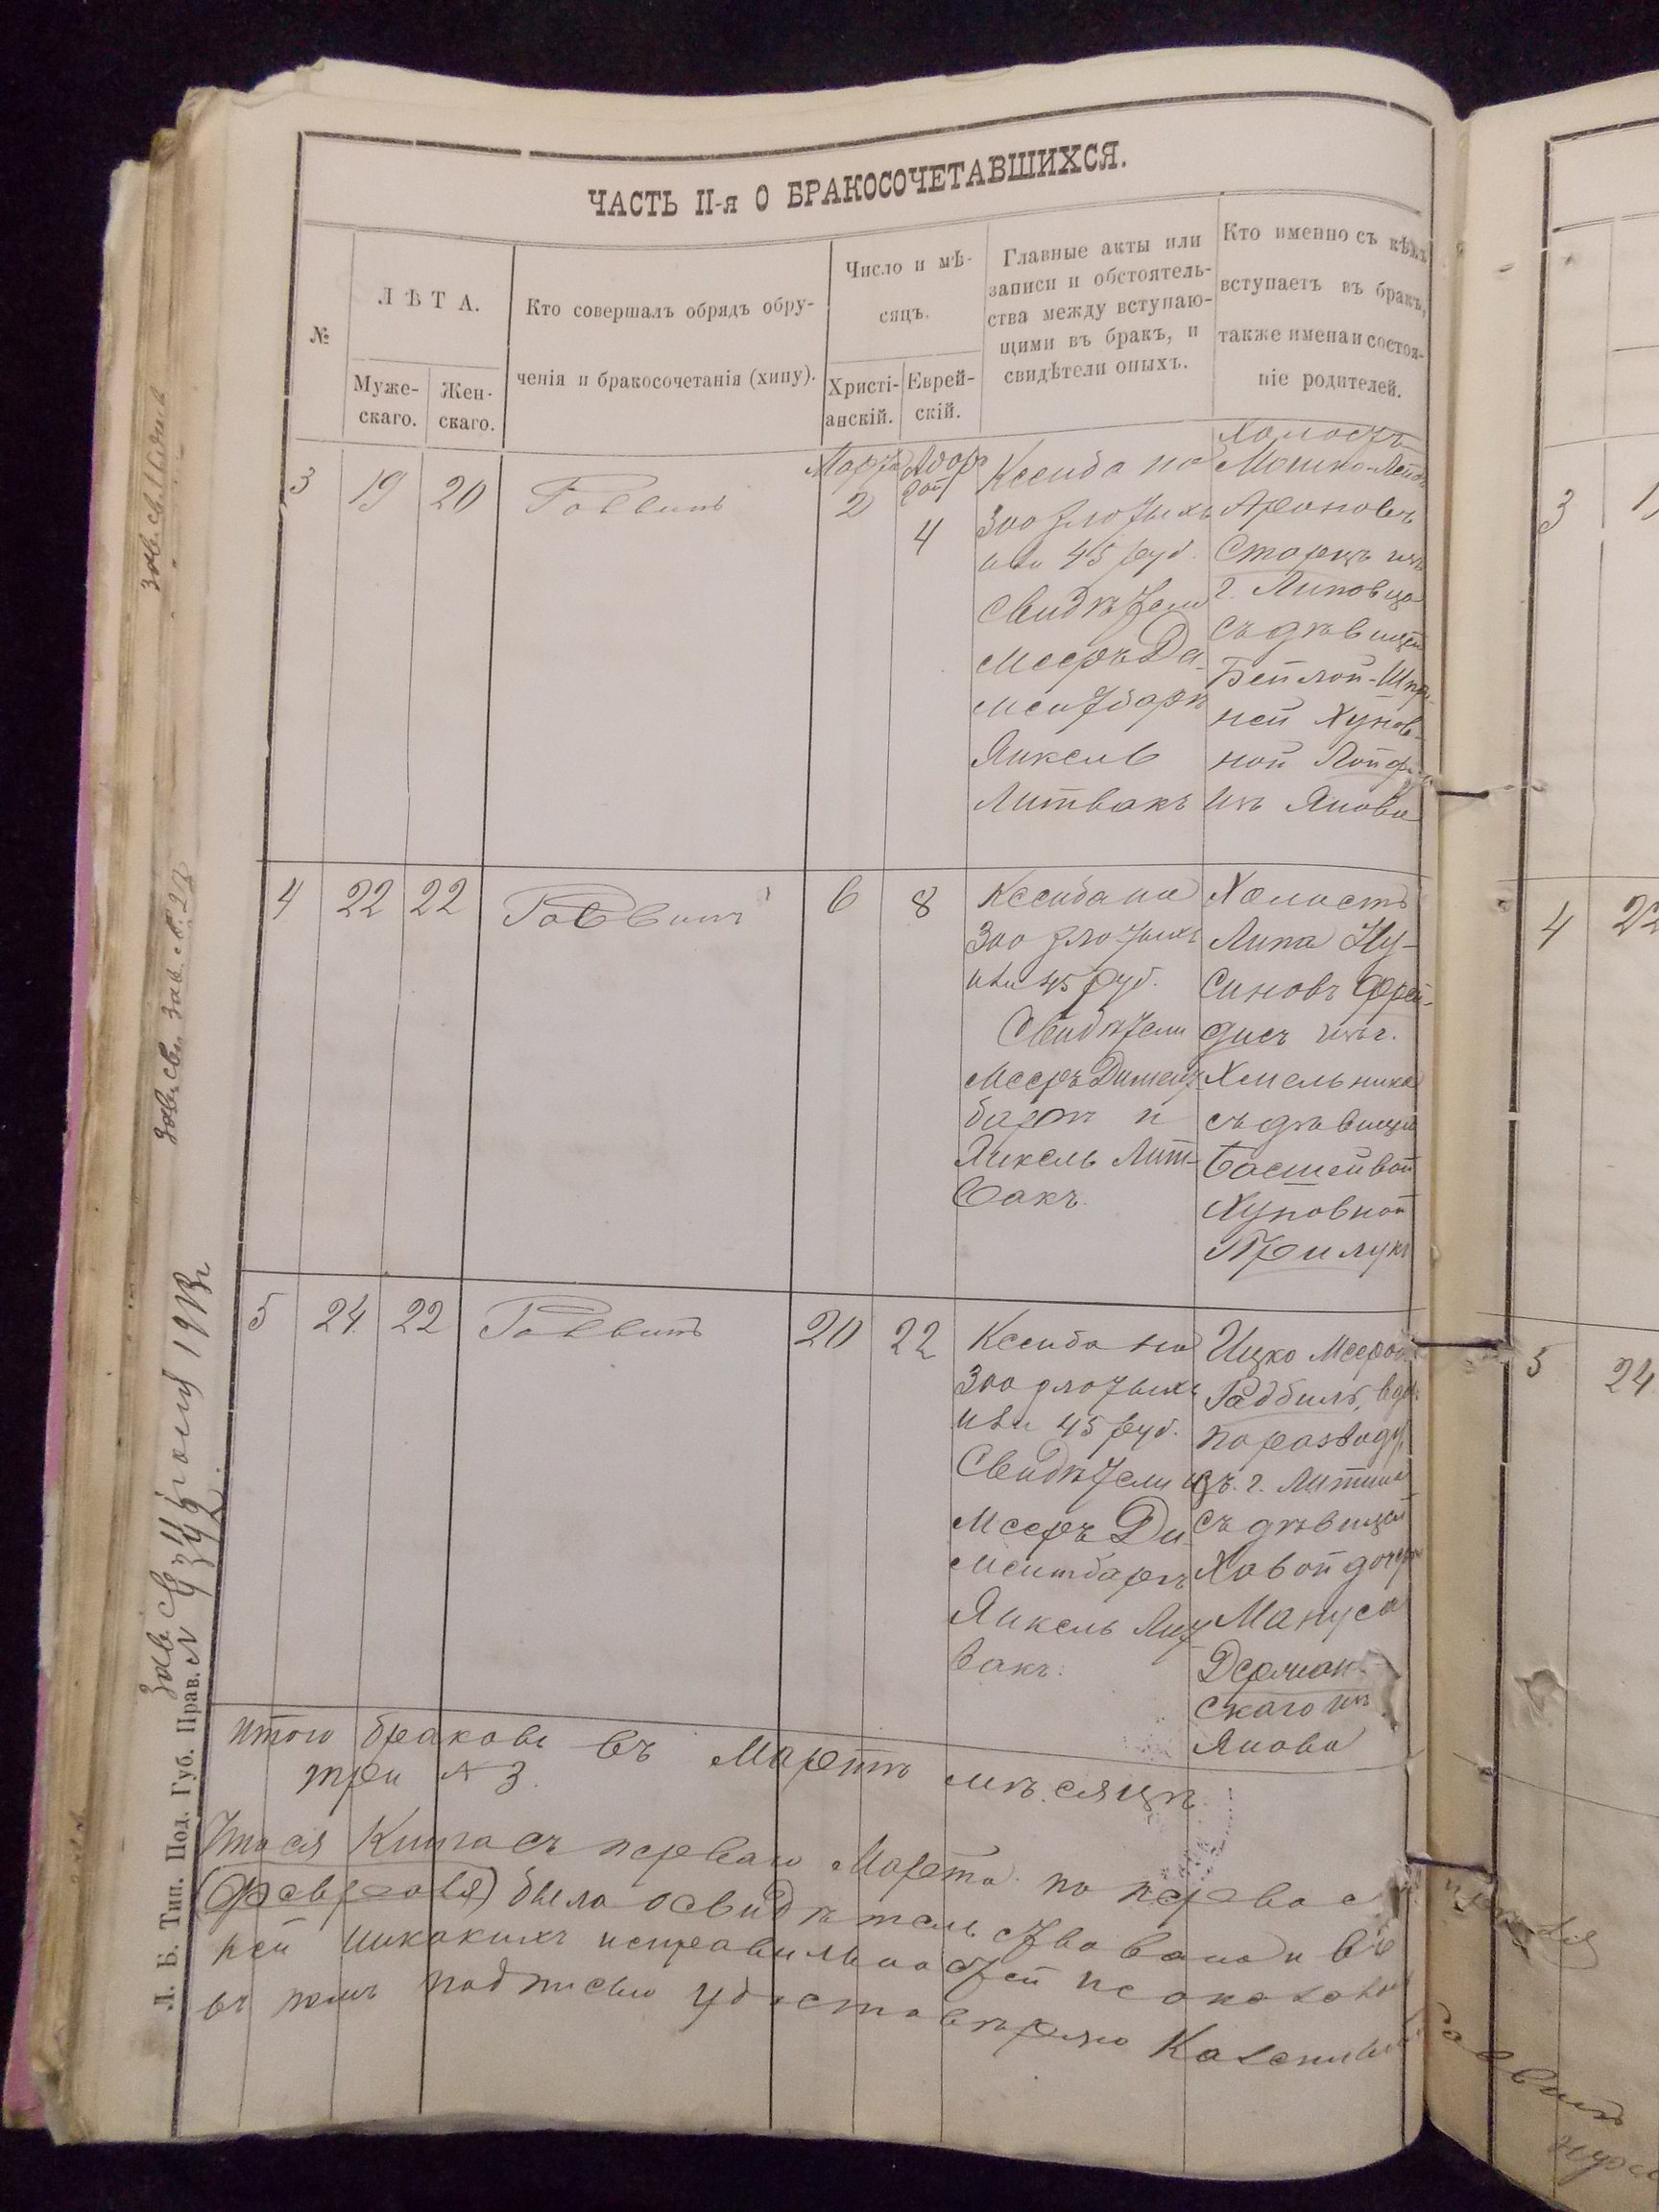 ЧАСТЬ II-я О БРАКОСОЧЕТАВШИХСЯ.
№
ЛѢТА.
Муже-
скаго.
Жен-
скаго.
Кто совершалъ обрядъ обру-
ченія и бракосочетанія (хипу).
Число и мѣ-
сяцъ.
Христі-
анскій.
Еврей-
скій.
Главные акты или
записи и обстоятель-
ства между вступаю-
щими въ бракъ, и
свидѣтели оныхъ.
Кто именно съ кѣмъ
вступаетъ въ бракъ,
также имена и состоя-
ніе родителей.
3
19
20
Раввинъ
Марта
2
Адаръ
4
Ксиба на
300 злотыхъ
или 45 руб.
Свидѣтели
Мееръ Ди-
ментбаръ
Янкель
Литвакъ
Холостъ
Мошко-Лейб
Ароновъ
Старецъ изъ
г. Липовца
съ дѣвицей
Бейлой-
ней Хунов-
ной
изъ Янова
4
22
22
Раввинъ
6
8
Ксиба на
300 злотыхъ
или 45 руб.
Свидѣтели
Мееръ Димент-
баръ и
Янкель Лит-
вакъ.
Холостъ
Липа Ну-
синовъ Фрей-
дисъ изъ г.
Хмельника
съ дѣвицей
Басшейвой
Хуновной
Прилукъ
5
24
22
Раввинъ
20
22
Ксиба на
300 злотыхъ
или 45 руб.
Свидѣтели
Мееръ Ди-
ментбаръ
Янкель Лит
вакъ.
Ицко Мееров
Радбиль,
по разводу
изъ г. Литина
съ дѣвицей
Хавой дочерью
Мануса
Дерман-
скаго изъ
Янова
Итого браковъ въ Мартѣ мѣсяцѣ
три № 3.
Что сія Книга съ перваго Марта по первое
(Февраля) была освидѣтельствована и въ
ней никакихъ неправильностей не оказалось
въ томъ подписью удостовѣряю Казенный
Л. Б. Тип. Под. Губ. Прав.
3
4
22
5
24